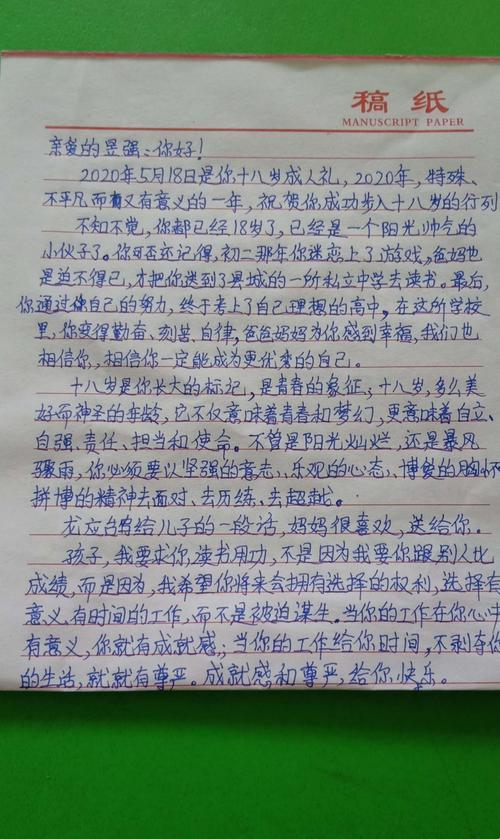 稿纸
MANUSCRIPT PAPER
亲爱的昱强:你好!
2020年5月18日是你十八岁成人礼,2020年,特殊、
不平凡而又有意义的一年,祝贺你成功步入十八岁的行列
不知不觉,你都已经18岁了,已经是一个阳光,帅气的
小伙子了。你是否还记得,初二那年你迷恋上了游戏,爸妈也
是迫不得已,才把你送到了县城的一所私立中学去读书。最后,
你通过你自己的努力,终于考上了自己理想的高中,在这所学校
里,你变得勤奋、刻苦、自律,爸爸妈妈为你感到幸福,我们也
相信你,相信你一定能成为更优秀的自己。
十八岁是你长大的标记,是青春的象征,十八岁,多么美
好而神圣的年龄,它不仅意味着青春和梦幻,更意味着自立、
自强、责任、担当和使命。不管是阳光灿烂,还是暴风
骤雨,你必须要以坚强的意志、乐观的心态、博爱的胸怀
拼博的精神去面对、去历练、去超越。
龙应台给儿子的一段话,妈妈很喜欢,送给你。
孩子,我要求你读书用功,不是因为我要你跟别人比
成绩,而是因为,我希望你将来会拥有选择的权利,选择有
意义、有时间的工作,而不是被迫谋生。当你的工作在你心中
有意义,你就有成就感,当你的工作给你时间,不剥夺你
的生活,就就有尊严。成就感和尊严,给你快乐。